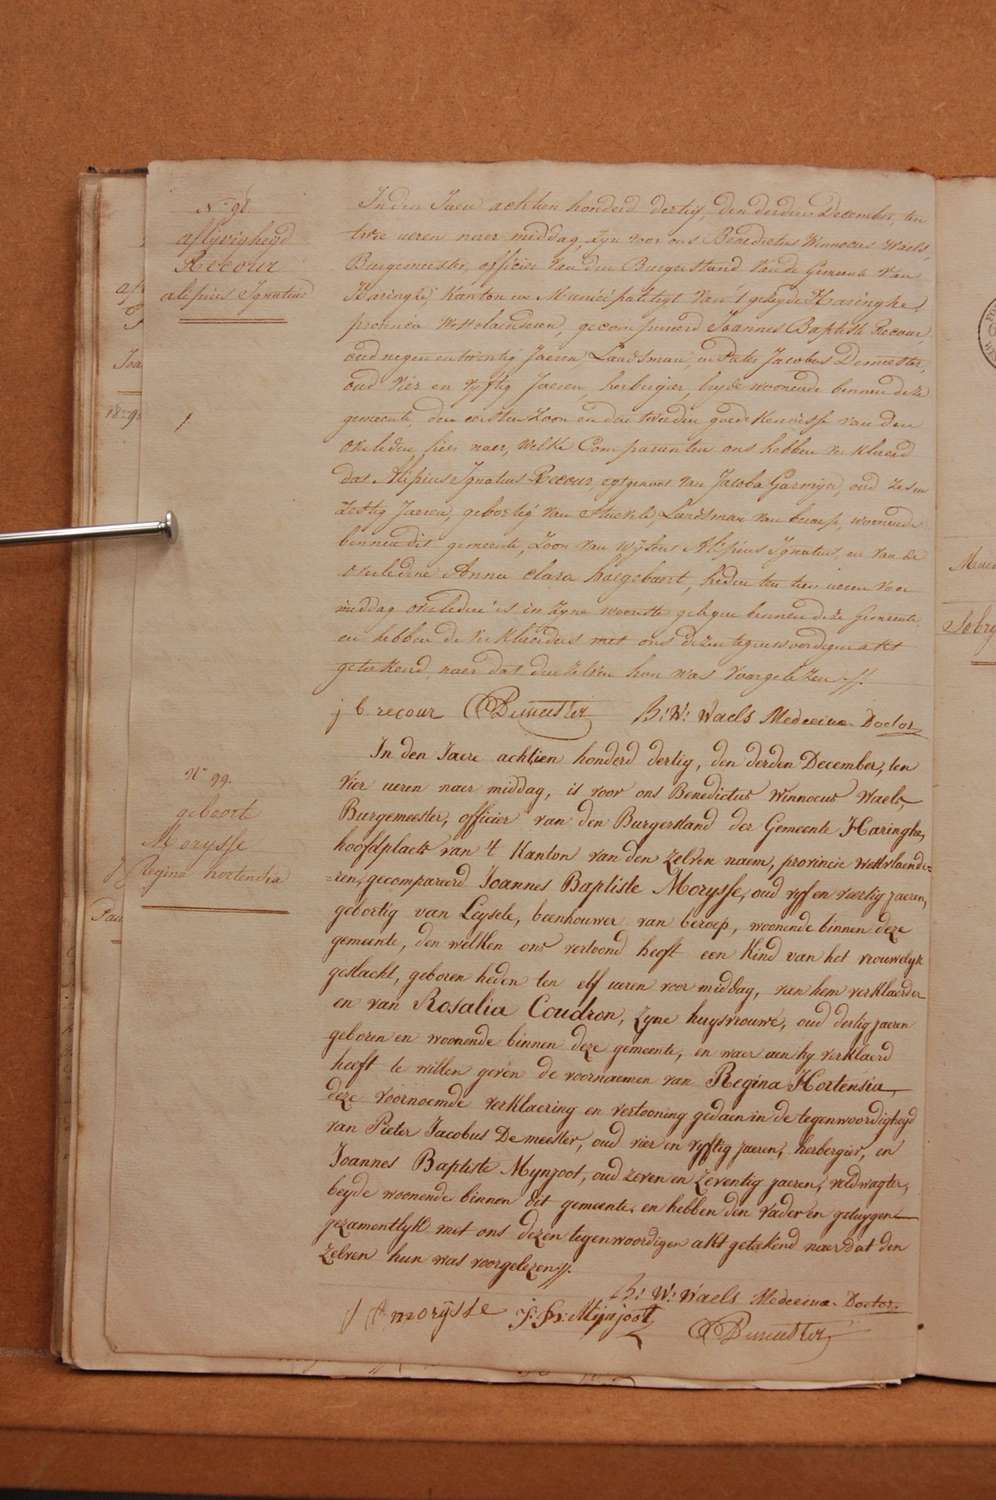 N° 98
aflijvigheijd
Recour
alipius Ignatius
In den Jaere achtien honderd dertig, den derden December, ten
twee ueren naer middag, zyn voor ons Benedictus Winnocus Waels,
Burgemeester, officier van den Burgerstand van de Gemeente van
Haringhe, Kanton en Municipaliteyt van 't gezeyde Haringhe,
provincie Westvlaenderen, gecompareerd Joannes Baptiste Recour,
oud negen en twintig Jaeren, Landsman, en Pieter Jacobus Demeester,
oud vier en vyftig Jaeren, herbergier, beyde woonende binnen deze
gemeente, den eersten zoon en den tweeden goede kennisse van den
overleden hier naer, welke Comparanten ons hebben verklaerd
dat Alipius Ignatius Recour egtgenoot van Jacoba Garmyn, oud zes en
zestig Jaeren, gebortig van Landsman van beroep, woonende
binnen dit gemeente, zoon van wylent Alipius Ignatius, en van de
overledene Anna Clara heden ten tien ueren voor
middag overleden is in zyne woonste gelegen binnen deze Gemeente
en hebben de verklaerders met ons dezen tegenwoordigen akt
geteekend, naer dat den zelven hun was voorgelezen //.
j b recour P Demeester B: W: Waels Medecina Doctor
N° 99.
geboort
Morysse
Regina hortensia
In den Jaere achtien honderd dertig, den derden December, ten
vier ueren naer middag, is voor ons Benedictus Winnocus Waels,
Burgemeester, officier van den Burgerstand der Gemeente Haringhe,
hoofdplaets van 't Kanton van den zelven naem, provincie Westvlaende=
=ren, gecompareerd Joannes Baptiste Morysse, oud vyf en veertig jaeren,
gebortig van Leysele, beenhouwer van beroep, woonende binnen deze
gemeente, den welken ons vertoond heeft een Kind van het vrouwelyk
geslacht, geboren heden ten elf ueren voor middag, van hem verklaerder
en van Rosalia Coudron, zyne huysvrouwe, oud dertig jaeren
geboren en woonende binnen deze gemeente, en waer aen hy verklaerd
heeft te willen geven de voornaemen van Regina Hortensia,
deze voornoemde verklaering en vertooning gedaen in de tegenwoordigheyd
van Pieter Jacobus Demeester, oud vier en vyftig jaeren, herbergier, en
Joannes Baptiste Mynjoot, oud zeven en zeventig jaeren, veldwagter,
beyde woonende binnen dit gemeente, en hebben den Vader en getuygen
gezamentlyk met ons dezen tegenwoordigen akt geteekend naer dat den
zelven hun was voorgelezen //.
B: W: Waels Medecina Doctor
j b morysse J: Bte Mijnjoot
P Demeester